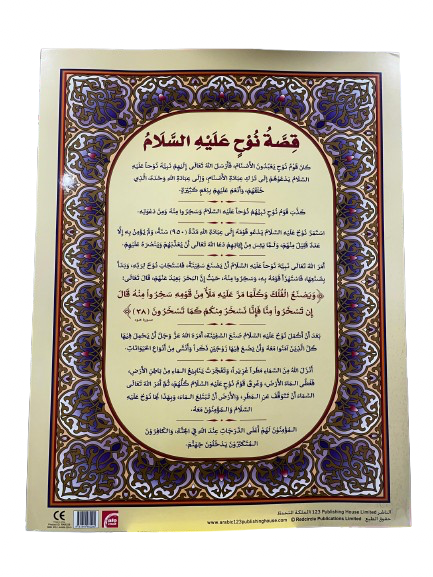 قِصَّةُ نُوْحٍ عَلَيْهِ السَّلَامُ
كَانَ قَوْمُ نُوْحٍ يَعْبُدُونَ الْأَصْنَامَ، فَأَرْسَلَ اللهُ تَعَالَى إِلَيْهِمْ نَبِيَّهُ نُوْحاً عَلَيْهِ
السَّلَامُ يَدْعُوْهُمْ إِلَى تَرْكِ عِبَادَةِ الْأَصْنَامِ، وَإِلَى عِبَادَةِ اللهِ وَحْدَهُ، الَّذِي
خَلَقَهُمْ، وَأَنْعَمَ عَلَيْهِمْ بِنِعَمٍ كَثِيْرَةٍ.
كَذَّبَ قَوْمُ نُوْحٍ نَبِيَّهُمْ نُوْحاً عَلَيْهِ السَّلَامُ وَسَخِرُوا مِنْهُ وَمِنْ دَعْوَتِهِ.
اسْتَمَرَّ نُوْحٌ عَلَيْهِ السَّلَامُ يَدْعُو قَوْمَهُ إِلَى عِبَادَةِ اللهِ مُدَّةَ (٩٥٠) سَنَةً، وَلَمْ يُؤْمِنْ بِهِ إِلَّا
عَدَدٌ قَلِيْلٌ مِنْهُمْ، وَلَمَّا يَئِسَ مِنْ إِيْمَانِهِمْ دَعَا اللهَ تَعَالَى أَنْ يُعَذِّبَهُمْ وَيَنْصُرَهُ عَلَيْهِمْ.
أَمَرَ اللهُ تَعَالَى نَبِيَّهُ نُوْحاً عَلَيْهِ السَّلَامُ أَنْ يَصْنَعَ سَفِيْنَةً، فَاسْتَجَابَ نُوْحٌ لِرَبِّهِ، وَبَدَأَ
بِصُنْعِهَا، فَاسْتَهْزَأَ قَوْمُهُ بِهِ، وَسَخِرُوا مِنْهُ، حَيْثُ إِنَّ الْبَحْرَ بَعِيْدٌ عَنْهُمْ، قَالَ تَعَالَى:
﴿ وَيَصْنَعُ الْفُلْكَ وَكُلَّمَا مَرَّ عَلَيْهِ مَلَأٌ مِنْ قَوْمِهِ سَخِرُوا مِنْهُ قَالَ
إِن تَسْخَرُوا مِنَّا فَإِنَّا نَسْخَرُ مِنكُمْ كَمَا تَسْخَرُونَ (٣٨) ﴾
سورة هود
بَعْدَ أَنْ أَكْمَلَ نُوْحٌ عَلَيْهِ السَّلَامُ صُنْعَ السَّفِيْنَةِ، أَمَرَهُ اللهُ عَزَّ وَجَلَّ أَنْ يَحْمِلَ فِيْهَا
كُلَّ الَّذِيْنَ آمَنُوا مَعَهُ وَأَنْ يَضَعَ فِيْهَا زَوْجَيْنِ ذَكَراً وَأُنْثَى مِنْ أَنْوَاعِ الْحَيَوَانَاتِ.
أَنْزَلَ اللهُ مِنَ السَّمَاءِ مَطَراً غَزِيْراً، وَتَفَجَّرَتْ يَنَابِيْعُ الْمَاءِ مِنْ بَاطِنِ الْأَرْضِ،
فَغَطَّى الْمَاءُ الْأَرْضَ، وَغَرِقَ قَوْمُ نُوْحٍ عَلَيْهِ السَّلَامُ كُلُّهُمْ، ثُمَّ أَمَرَ اللهُ تَعَالَى
السَّمَاءَ أَنْ تَتَوَقَّفَ عَنِ الْمَطَرِ، وَالْأَرْضَ أَنْ تَبْتَلِعَ الْمَاءَ، وَبِهَذَا نَجَا نُوْحٌ عَلَيْهِ
السَّلَامُ وَالْمُؤْمِنُوْنَ مَعَهُ.
الْمُؤْمِنُوْنَ لَهُمْ أَعْلَى الدَّرَجَاتِ عِنْدَ اللهِ فِي الْجَنَّةِ، وَالْكَافِرُوْنَ
الْمُتَكَبِّرُوْنَ يَدْخُلُوْنَ جَهَنَّمَ.
الناشر 123 Publishing House Limited المملكة المتحدة
حقوق الطبع © Redcircle Publications Limited www.arabic123publishinghouse.com
CE